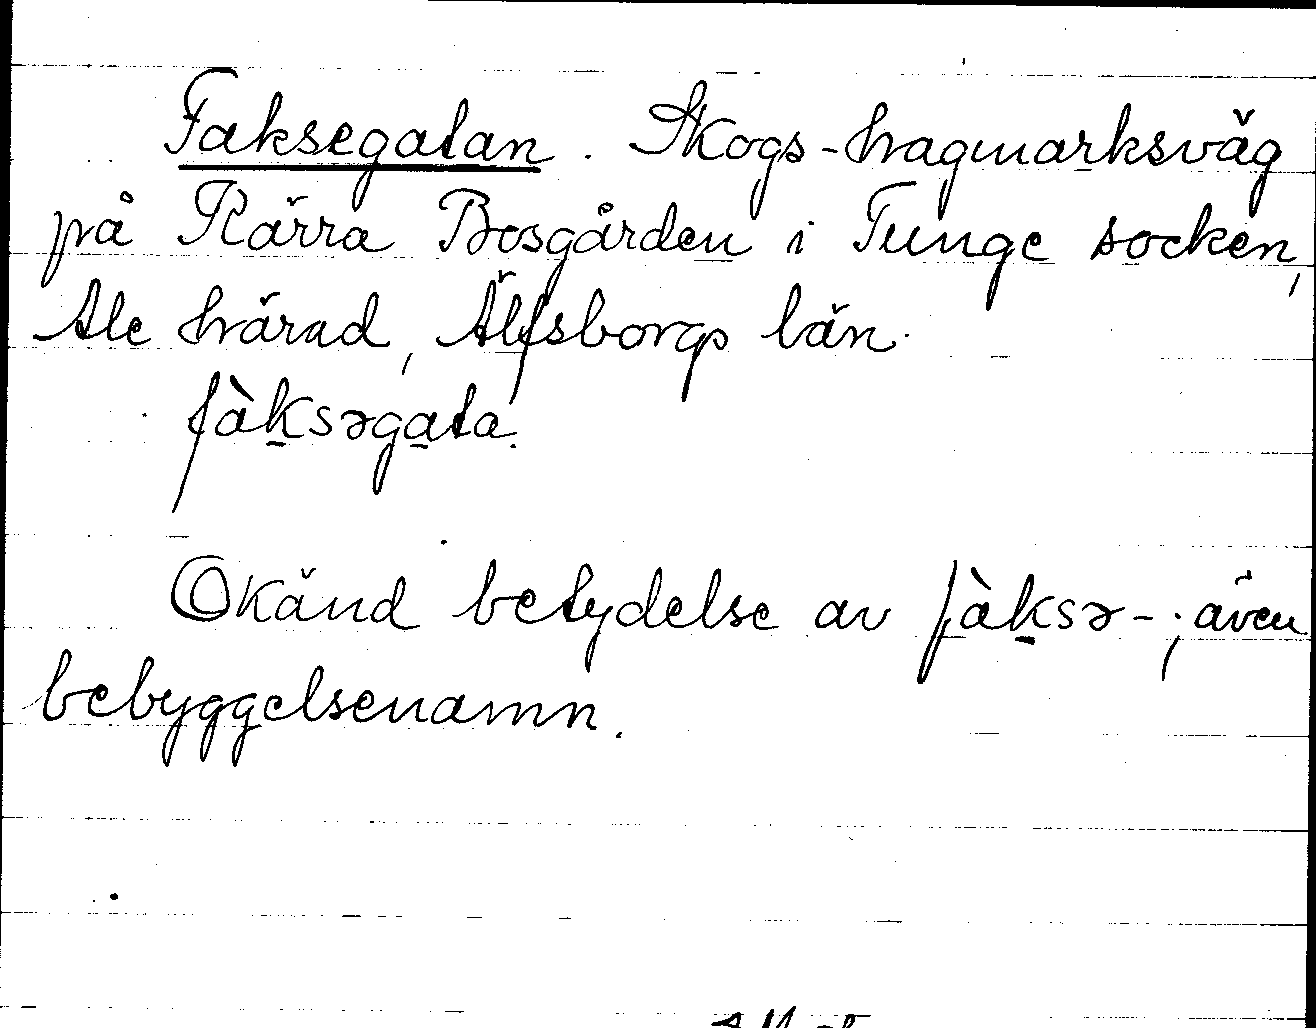 Faksegatan. Skogs-hagmarksväg
på Kärra Bosgården i Tunge socken,
Ale härad, Älfsborgs län.
fàksəgata.
Okänd betydelse av fàksə-; även
bebyggelsenamn.